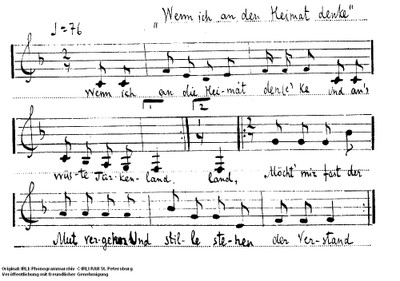 "Wenn ich an den Heimat denke"
♩=76
Wenn ich an die Hei-mat den(c)'ke Und an's
1 2
wüs-te Tür-ken-land. land, Möcht' mir fast der
Mut ver-gehen Und stil-le ste-hen der Ver-stand
Original: IRLI-Phonogrammarchiv © IRLI RAN St. Petersburg
Veröffentlichung mit freundlicher Genehmigung